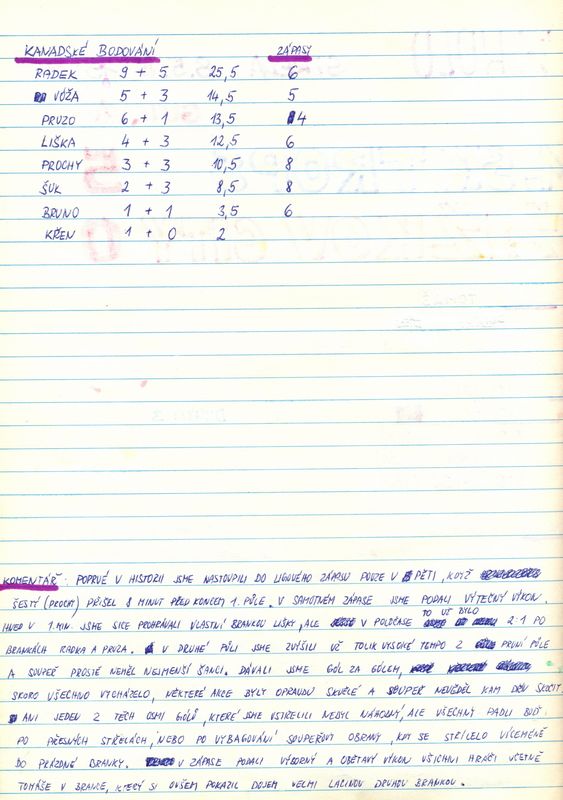 KANADSKÉ BODOVÁNÍ ZÁPASY
RADEK 9 + 5 25,5 6
VÓŽA 5 + 3 14,5 5
PRUZO 6 + 1 13,5 4
LIŠKA 4 + 3 12,5 6
PROCHY 3 + 3 10,5 8
ŠUK 2 + 3 8,5 8
BRUNO 1 + 1 3,5 6
KŘEN 1 + 0 2
KOMENTÁŘ: POPRVÉ V HISTORII JSME NASTOUPILI DO LIGOVÉHO ZÁPASU POUZE V PĚTI, KDYŽ
ŠESTÝ (PROCHY) PŘIŠEL 8 MINUT PŘED KONCEM 1. PŮLE. V SAMOTNÉM ZÁPASE JSME PODALI VÝTEČNÝ VÝKON.
HNED V 1. MIN. JSME SICE PROHRÁVALI VLASTNÍ BRANKOU LIŠKY, ALE V POLOČASE TO UŽ BYLO 2:1 PO
BRANKÁCH RADKA A PRUZA. V DRUHÉ PŮLI JSME ZVÝŠILI UŽ TOLIK VYSOKÉ TEMPO Z PRVNÍ PŮLE
A SOUPEŘ PROSTĚ NEMĚL NEJMENŠÍ ŠANCI. DÁVALI JSME GÓL ZA GÓLEM,
SKORO VŠECHNO VYCHÁZELO, NĚKTERÉ AKCE BYLY OPRAVDU SKVĚLÉ A SOUPEŘ NEVĚDĚL KAM DŘÍV SKOČIT.
ANI JEDEN Z TĚCH OSMI GÓLŮ, KTERÉ JSME VSTŘELILI NEBYL NÁHODNÝ, ALE VŠECHNY PADLI BUĎ
PO PŘESNÝCH STŘELÁCH, NEBO PO VYBAGOVÁNÍ SOUPEŘOVI OBRANY, KDY SE STŘÍLELO VÍCEMÉNĚ
DO PRÁZDNÉ BRANKY. V ZÁPASE PODALI VÝBORNÝ A OBĚTAVÝ VÝKON VŠICHNI HRÁČI VČETNĚ
TOMÁŠE V BRANCE, KTERÝ SI OVŠEM POKAZIL DOJEM VELMI LACINOU DRUHOU BRANKOU.